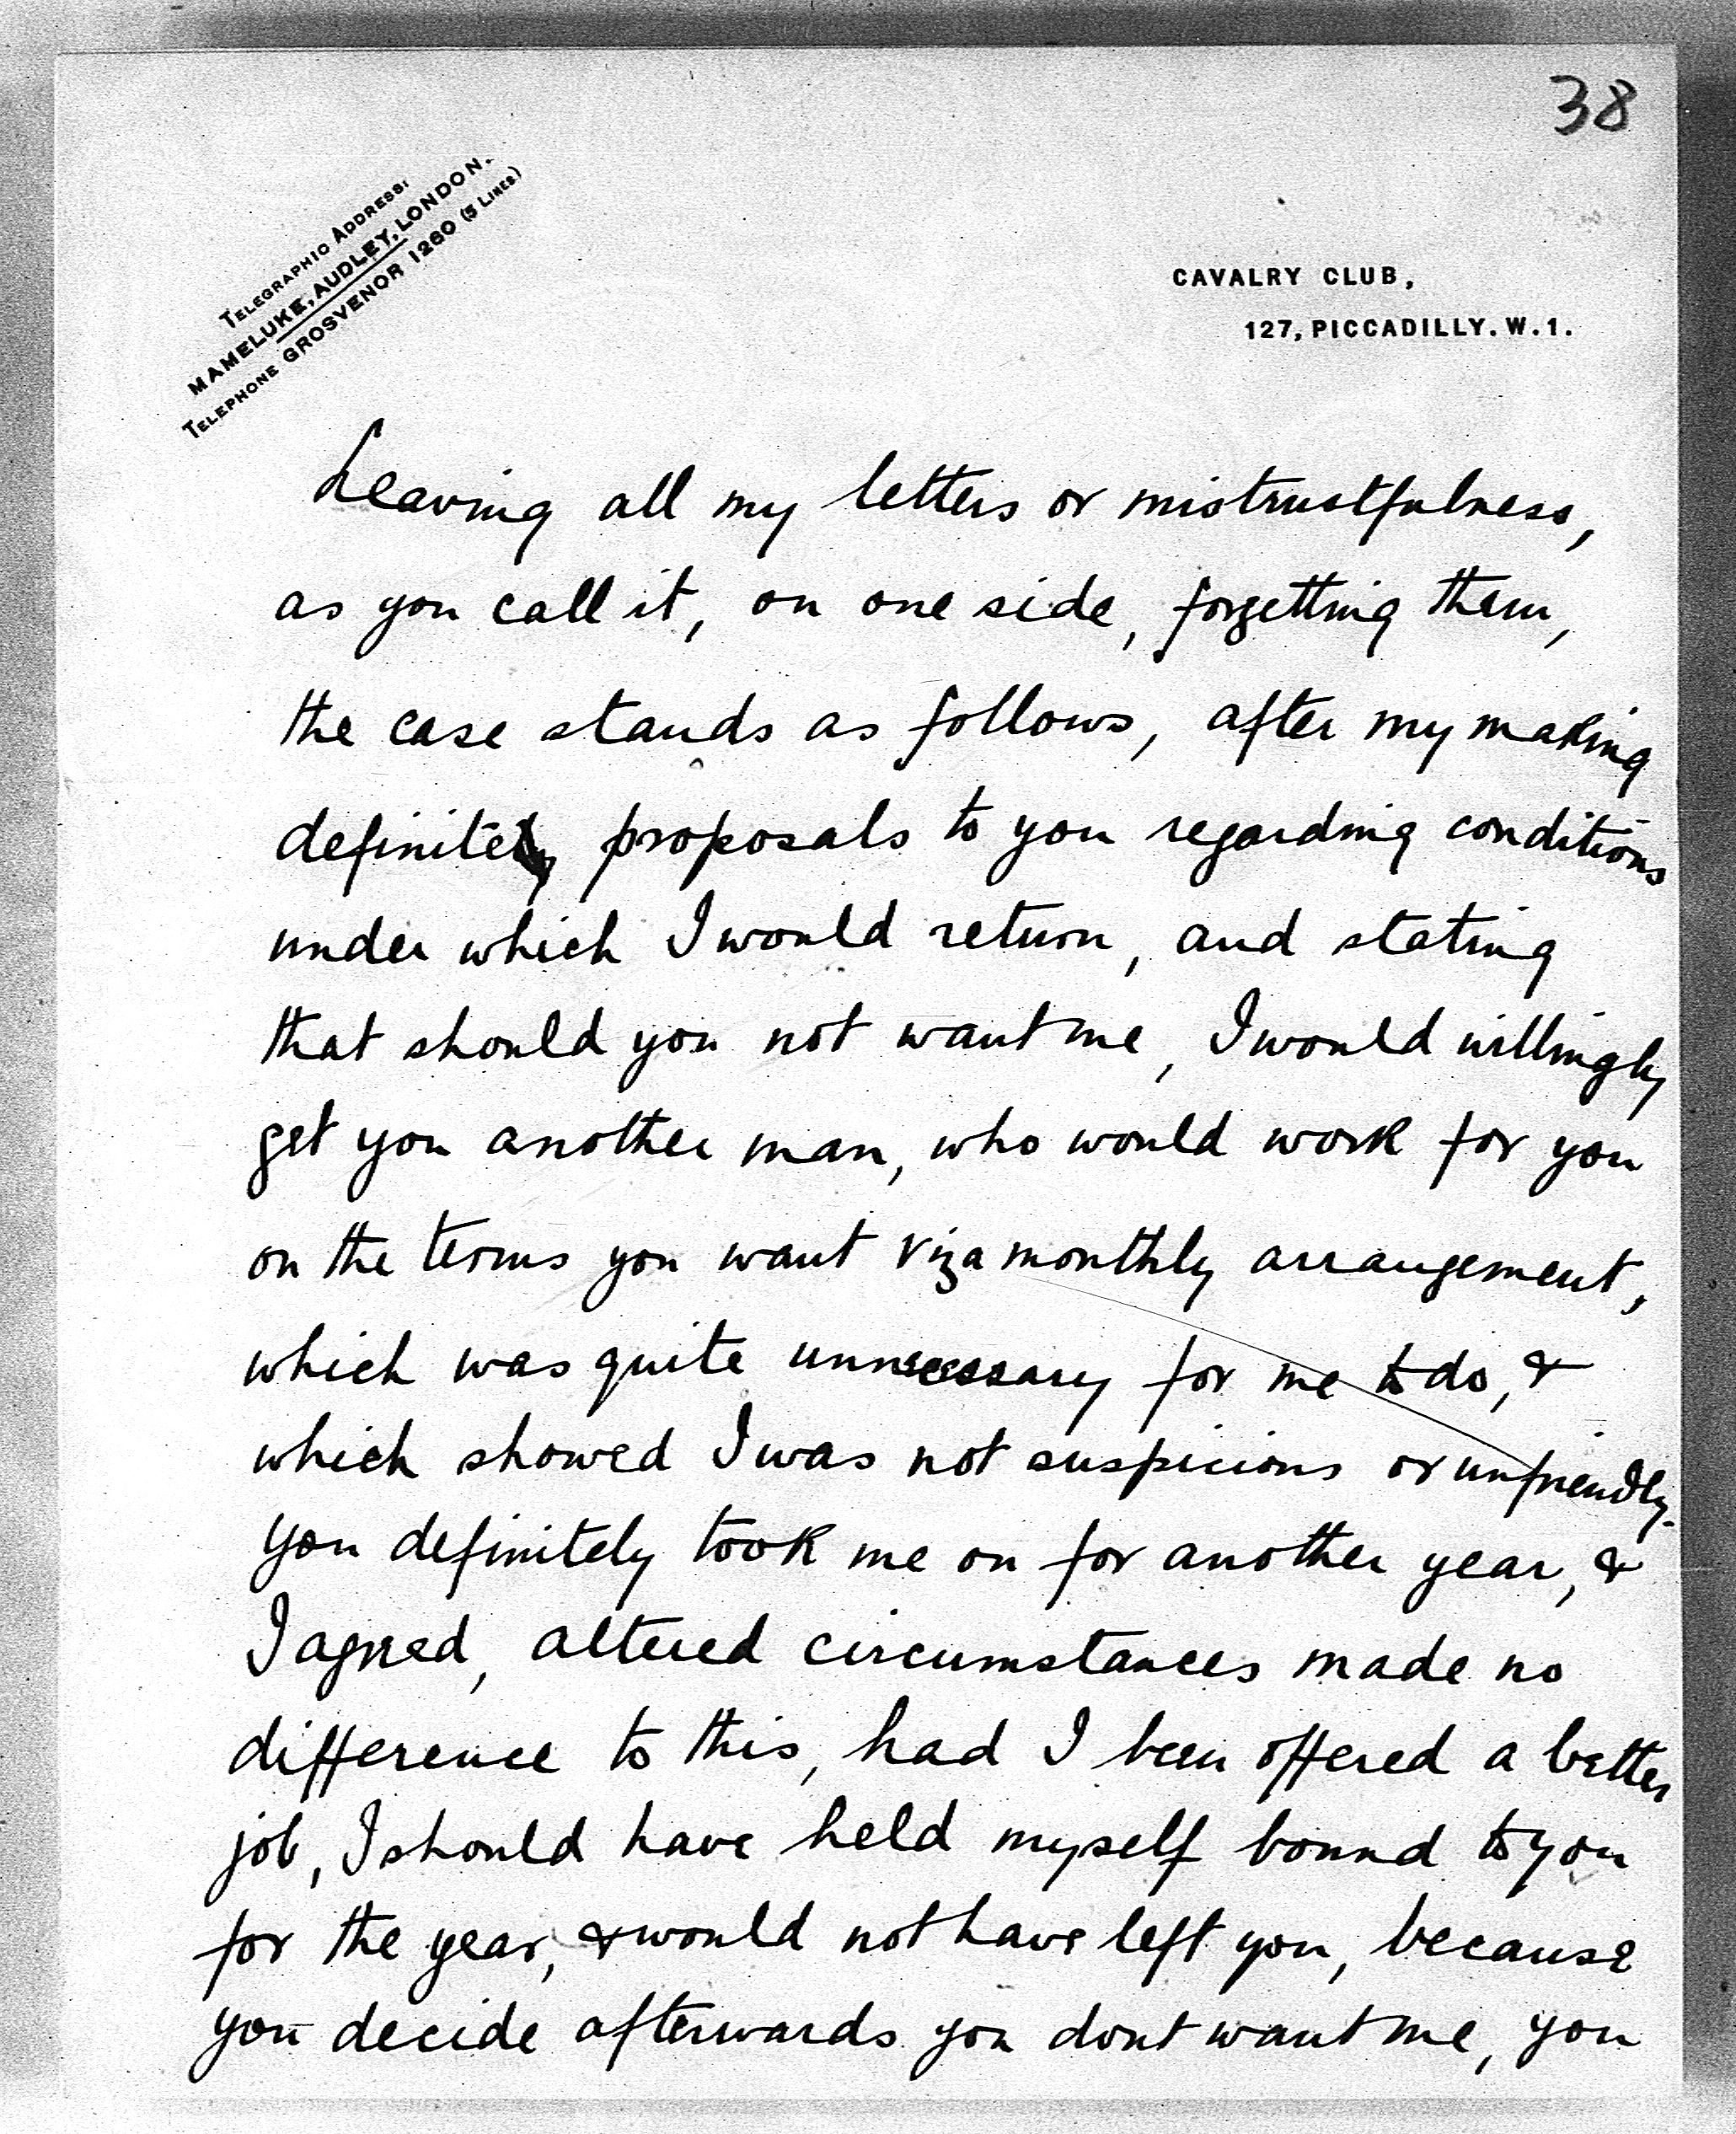 38
TELEGRAPHIC ADDRESS:
MAMELUKE, AUDLEY, LONDON.
TELEPHONE GROSVENOR 1260 (5 LINES.)
CAVALRY CLUB,
127, PICCADILLY. W.1.
Leaving all my letters or mistrustfulness,
as you call it, on one side, forgetting them,
the case stands as follows, after my making
definite proposals to you regarding conditions
under which I would return, and stating
that should you not want me, I would willingly
get you another man, who would work for you
on the terms you want viz a monthly arrangement,
which was quite unnecessary for me to do, &
which showed I was not suspicious or unfriendly.
you definitely took me on for another year, &
I agreed, altered circumstances made no
difference to this, had I been offered a better
job, I should have held myself bound to you
for the year, & would not have left you, because
you decide afterwards you dont want me, you